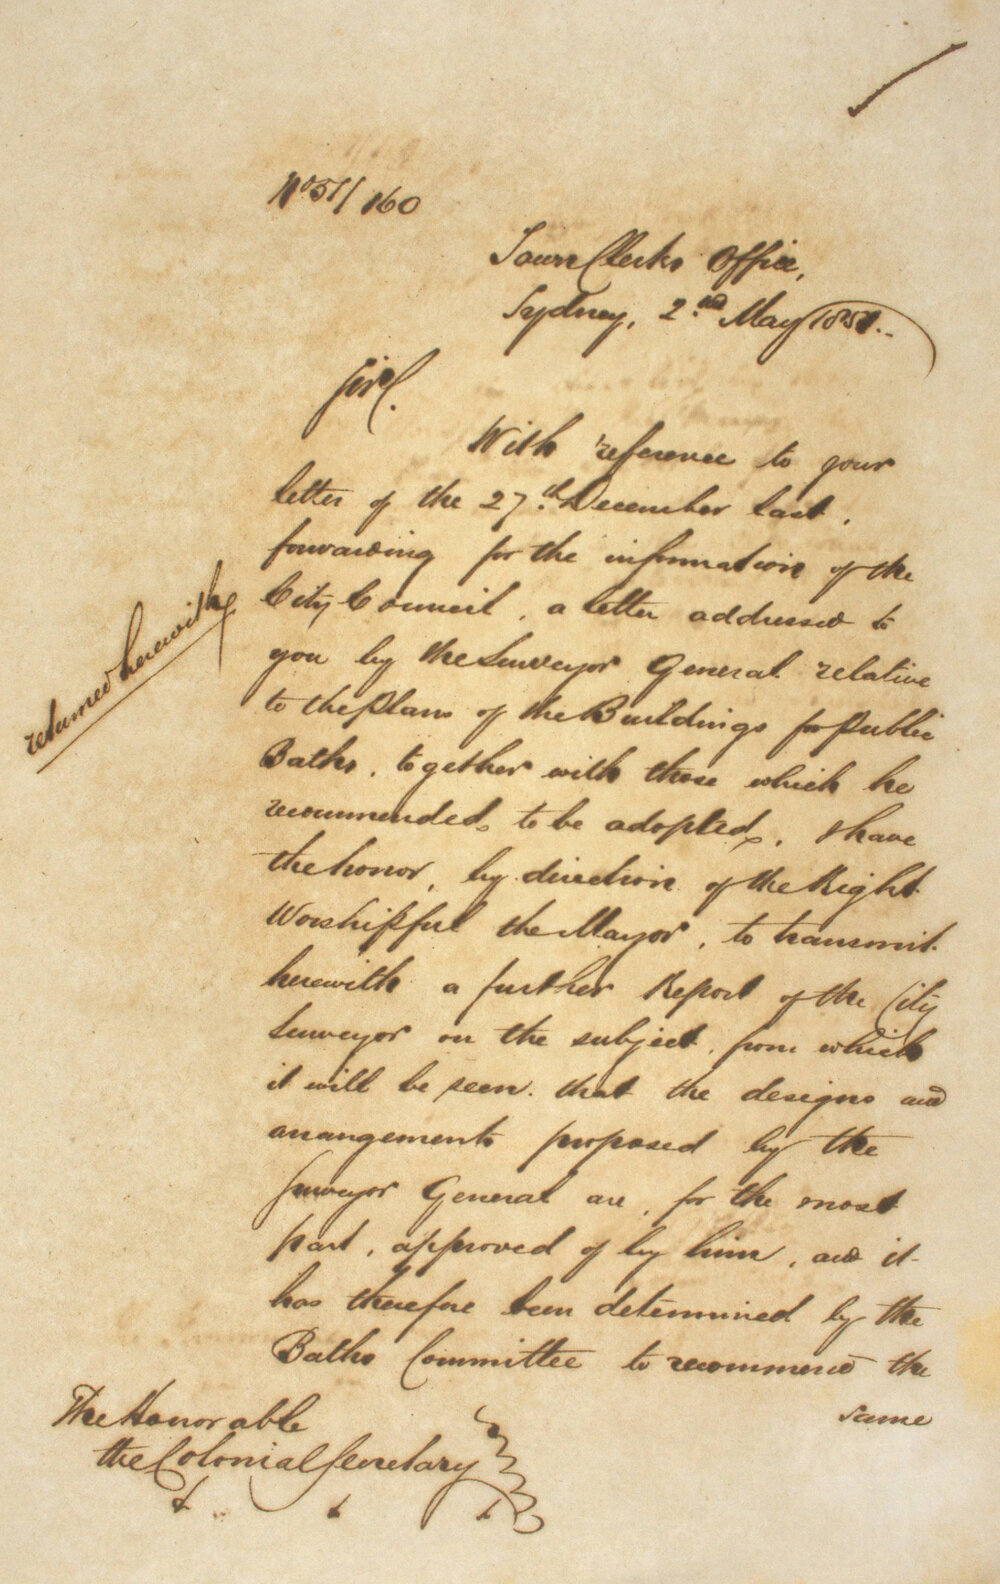 No 51/160
Town Clerks Office,
Sydney, 2nd May 1851.
Sir,
With reference to your
letter of the 27th December last,
forwarding for the information of the
City Council, a letter addressed to
you by the Surveyor General relative
to the Plans of the Buildings for Public
Baths, together with those which he
recommended to be adopted, I have
the honor, by direction of the Right
Worshipful the Mayor, to transmit
herewith a further Report of the City
Surveyor on the subject, from which
it will be seen that the designs and
arrangements proposed by the
Surveyor General are, for the most
part, approved of by him, and it
has therefore been determined by the
Baths Committee to recommend the
same
returned herewith
The Honorable
the Colonial Secretary
&. & &